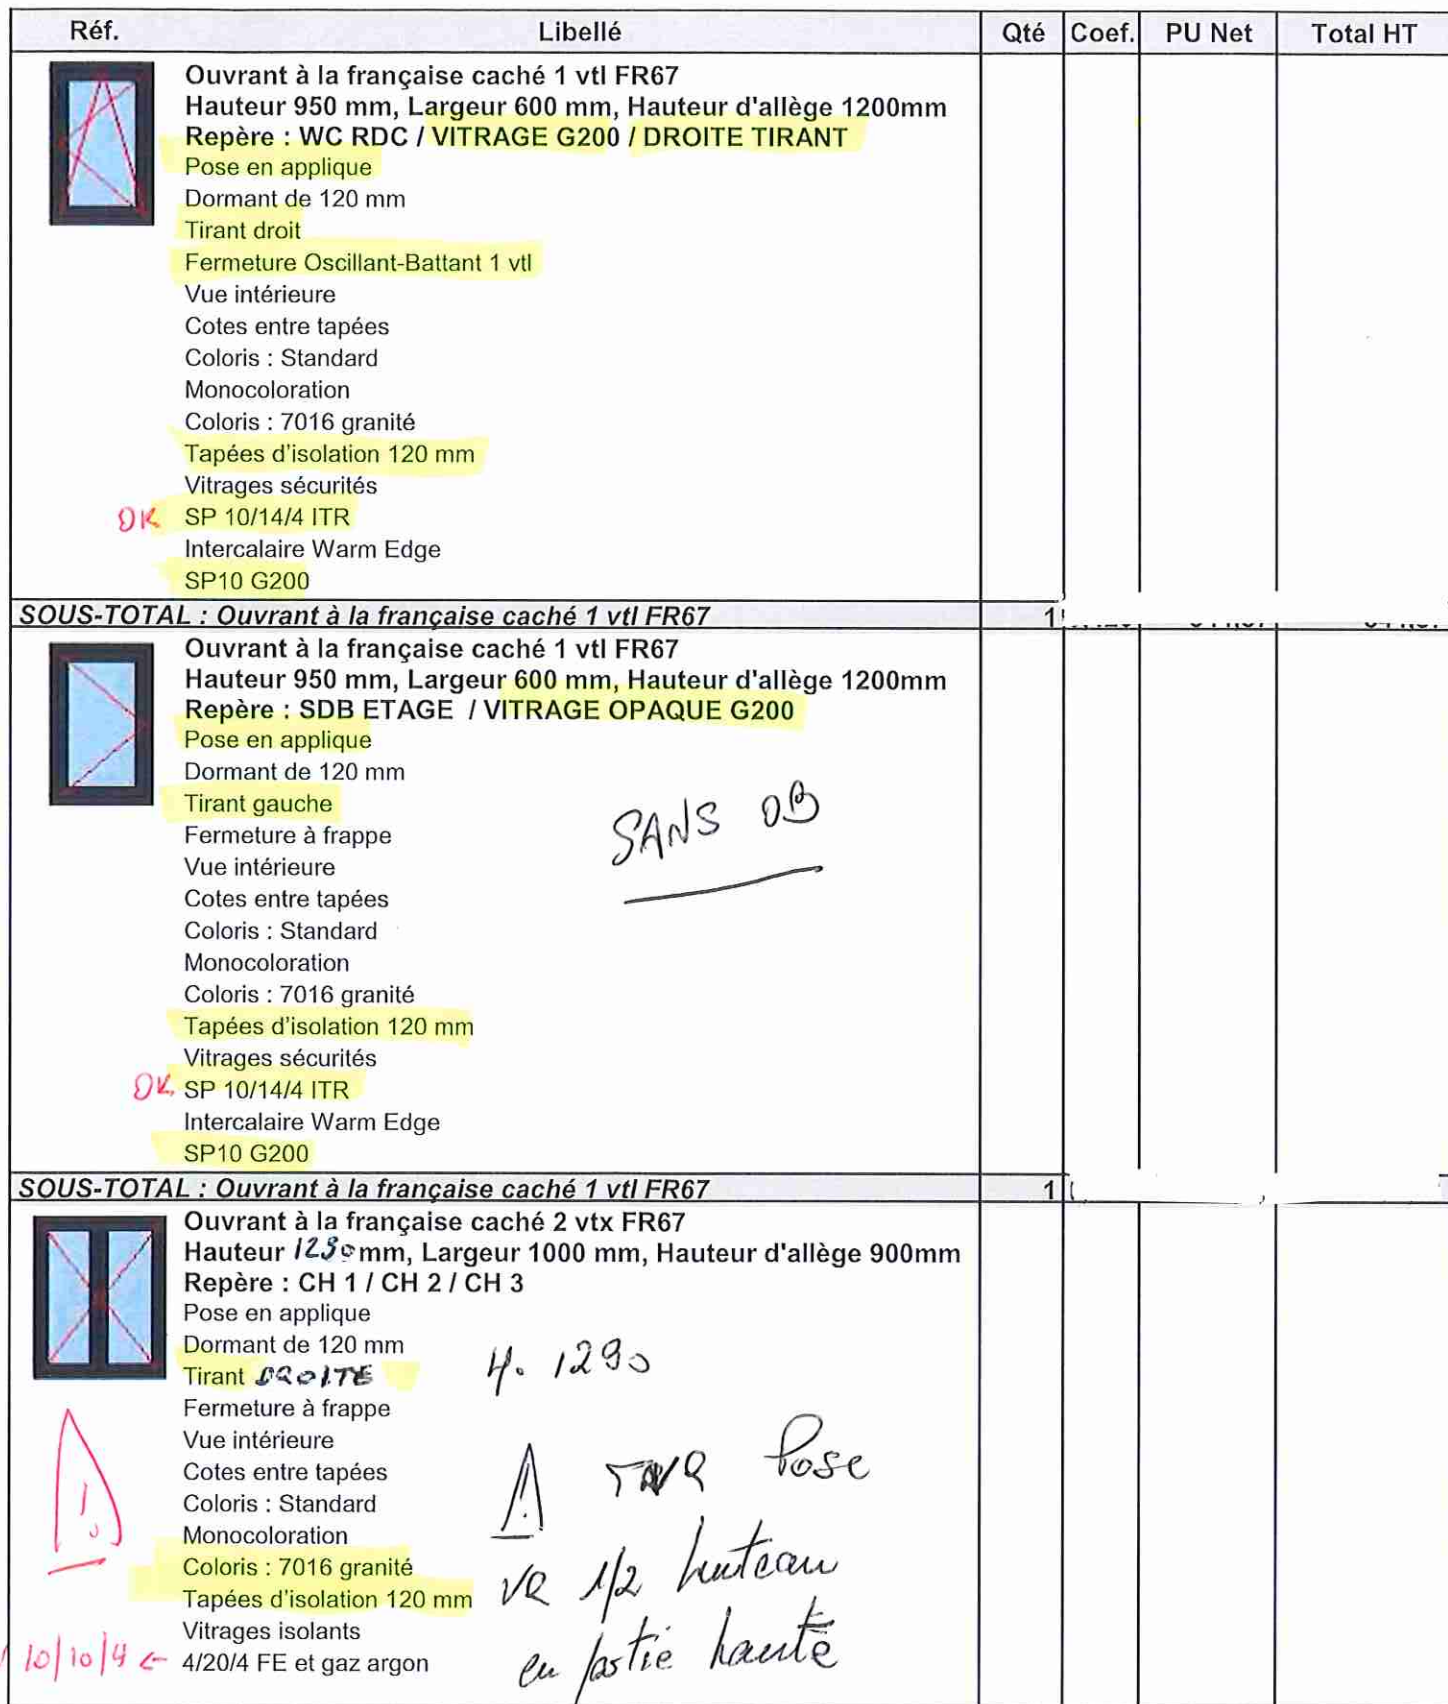 Réf. Libellé Qté Coef. PU Net Total HT
Ouvrant à la française caché 1 vtl FR67
Hauteur 950 mm, Largeur 600 mm, Hauteur d'allège 1200mm
Repère : WC RDC / VITRAGE G200 / DROITE TIRANT
Pose en applique
Dormant de 120 mm
Tirant droit
Fermeture Oscillant-Battant 1 vtl
Vue intérieure
Cotes entre tapées
Coloris : Standard
Monocoloration
Coloris : 7016 granité
Tapées d'isolation 120 mm
Vitrages sécurités
OK SP 10/14/4 ITR
Intercalaire Warm Edge
SP10 G200
SOUS-TOTAL : Ouvrant à la française caché 1 vtl FR67 1
Ouvrant à la française caché 1 vtl FR67
Hauteur 950 mm, Largeur 600 mm, Hauteur d'allège 1200mm
Repère : SDB ETAGE / VITRAGE OPAQUE G200
Pose en applique
Dormant de 120 mm
Tirant gauche
SANS OB
Fermeture à frappe
Vue intérieure
Cotes entre tapées
Coloris : Standard
Monocoloration
Coloris : 7016 granité
Tapées d'isolation 120 mm
Vitrages sécurités
OK SP 10/14/4 ITR
Intercalaire Warm Edge
SP10 G200
SOUS-TOTAL : Ouvrant à la française caché 1 vtl FR67 1
Ouvrant à la française caché 2 vtx FR67
Hauteur mm, Largeur 1000 mm, Hauteur d'allège 900mm
Repère : CH 1 / CH 2 / CH 3
Pose en applique
Dormant de 120 mm
Tirant DROITE H. 1290
Fermeture à frappe
Vue intérieure
Cotes entre tapées Pose
Coloris : Standard
Monocoloration
Coloris : 7016 granité
Tapées d'isolation 120 mm VR 1/2 linteau
Vitrages isolants
10/10/4 4/20/4 FE et gaz argon en partie haute